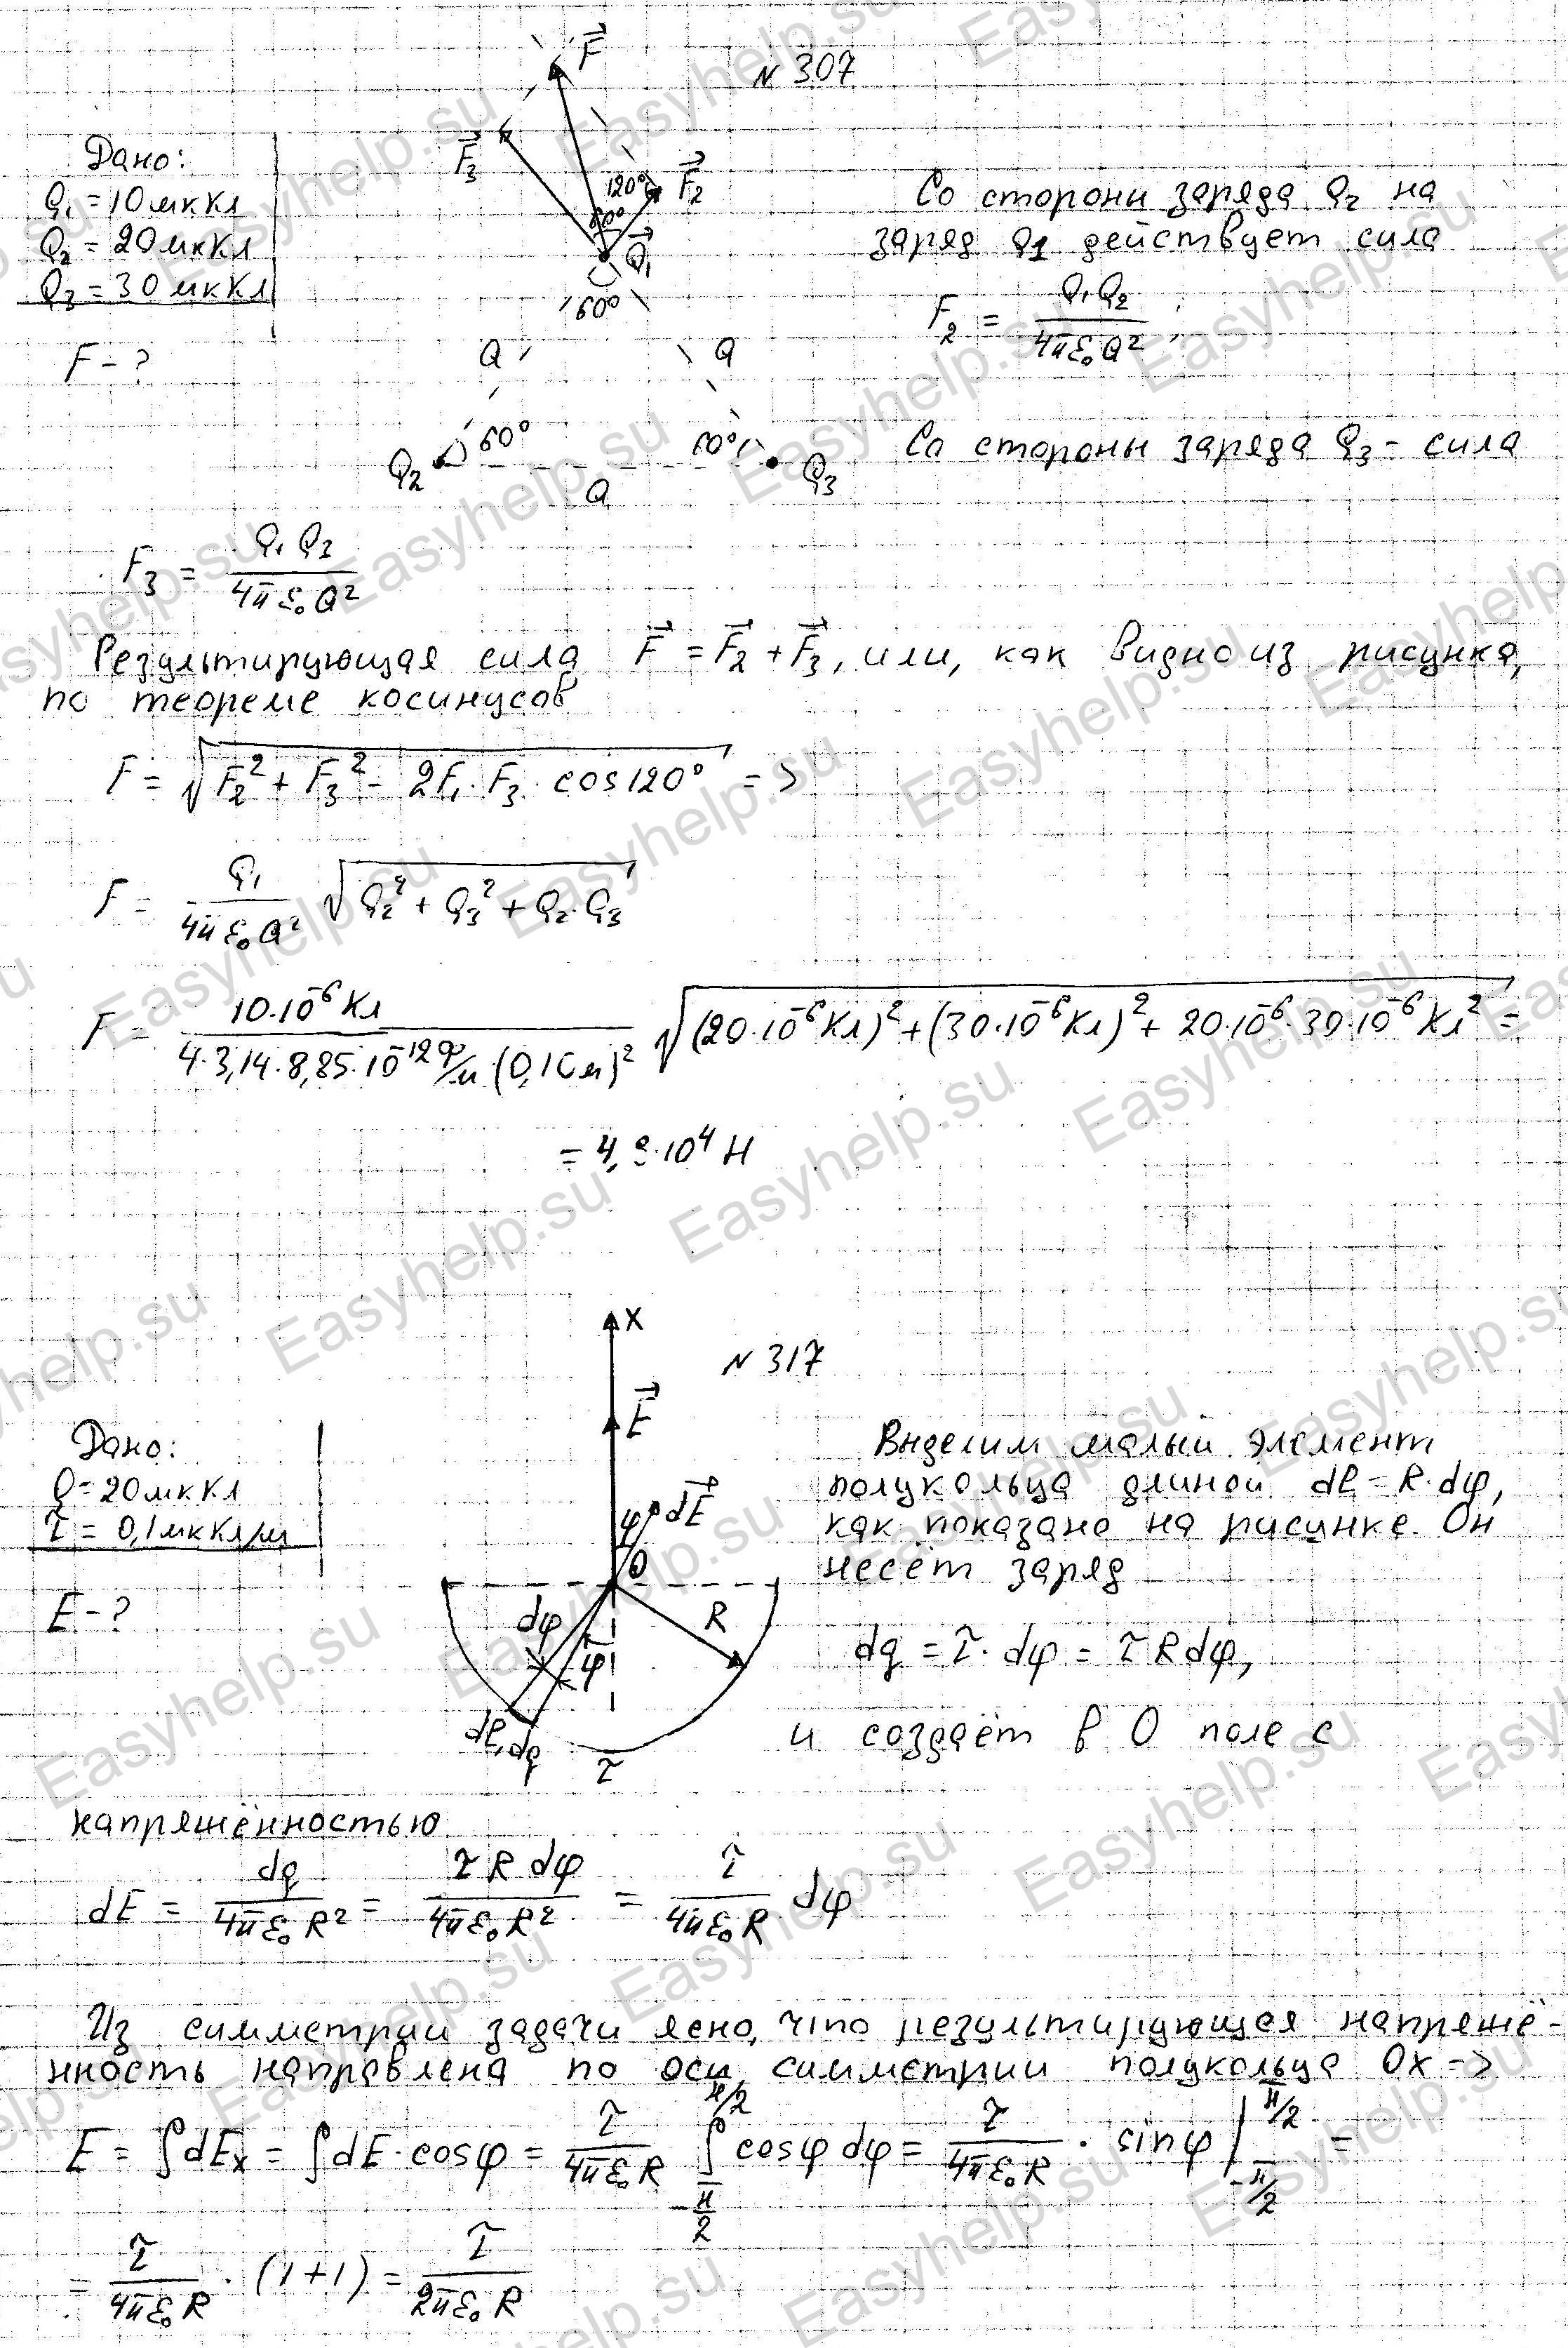 N 307
Дано:
Q₁ = 10 мкКл
Q₂ = 20 мкКл
Q₃ = 30 мкКл
F - ?
F⃗
F⃗₃
F⃗₂
120°
60°
Q₁
60°
Q
Q
Q₂
60°
60°
Q₃
Q
Со стороны заряда Q₂ на
заряд Q1 действует сила
F₂ = Q₁Q₂ / 4πε₀Q²;
Со стороны заряда Q₃ - сила
F₃ = Q₁Q₃ / 4πε₀Q²
Результирующая сила F⃗ = F⃗₂ + F⃗₃, или, как видно из рисунка,
по теореме косинусов
F = √(F₂² + F₃² - 2F₁·F₃·cos120°) =>
F = Q₁ / 4πε₀Q² √(Q₂² + Q₃² + Q₂·Q₃)
F = 10·10⁻⁶ Кл / 4·3,14·8,85·10⁻¹² Ф/м·(0,1 м)² √((20·10⁻⁶ Кл)² + (30·10⁻⁶ Кл)² + 20·10⁻⁶·30·10⁻⁶ Кл²) =
·10⁴ Н
N 317
Дано:
Q = 20 мкКл
τ = 0,1 мкКл/м
E - ?
X
E⃗
φ
dE⃗
O
dφ
R
φ
dℓ, dq
τ
Выделим малый элемент
полукольца длиной dℓ = R·dφ,
как показано на рисунке. Он
несёт заряд
dq = τ·dφ = τRdφ,
и создаёт в О поле с
напряжённостью
dE = dq / 4πε₀R² = τR dφ / 4πε₀R² = τ / 4πε₀R dφ
Из симметрии задачи ясно, что результирующая напряжё-
нность направлена по оси симметрии полукольца Ох =>
E = ∫dEx = ∫dE·cosφ = τ / 4πε₀R ∫ -π/2 π/2 cosφ dφ = τ / 4πε₀R · sinφ | -π/2 π/2 =
= τ / 4πε₀R · (1+1) = τ / 2πε₀R
Easyhelp.su